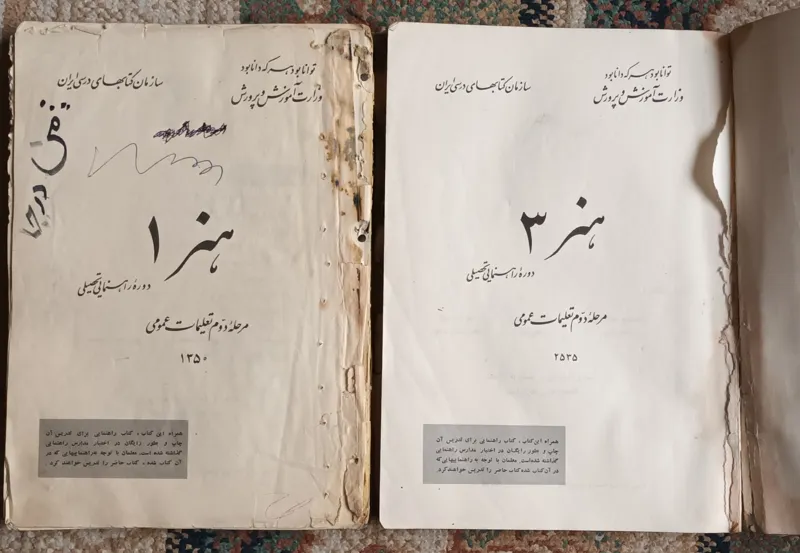 توانا بود هر که دانا بود
وزارت آموزش و پرورش
سازمان کتابهای درسی ایران
هنر ۱
دورهٔ راهنمایی تحصیلی
مرحلهٔ دوم تعلیمات عمومی
۱۳۵۰
همراه این کتاب، کتاب راهنمایی برای تدریس آن
چاپ و بطور رایگان در اختیار مدارس راهنمایی
گذاشته شده است. معلمان با توجه به راهنماییهایی که در
آن کتاب شده، کتاب حاضر را تدریس خواهند کرد.
توانا بود هر که دانا بود
وزارت آموزش و پرورش
سازمان کتابهای درسی ایران
هنر ۳
دورهٔ راهنمایی تحصیلی
مرحلهٔ دوم تعلیمات عمومی
۲۵۳۵
همراه این کتاب، کتاب راهنمایی برای تدریس آن
چاپ و بطور رایگان در اختیار مدارس راهنمایی
گذاشته شده است. معلمان با توجه به راهنماییهایی که
در آن کتاب شده کتاب حاضر را تدریس خواهند کرد.